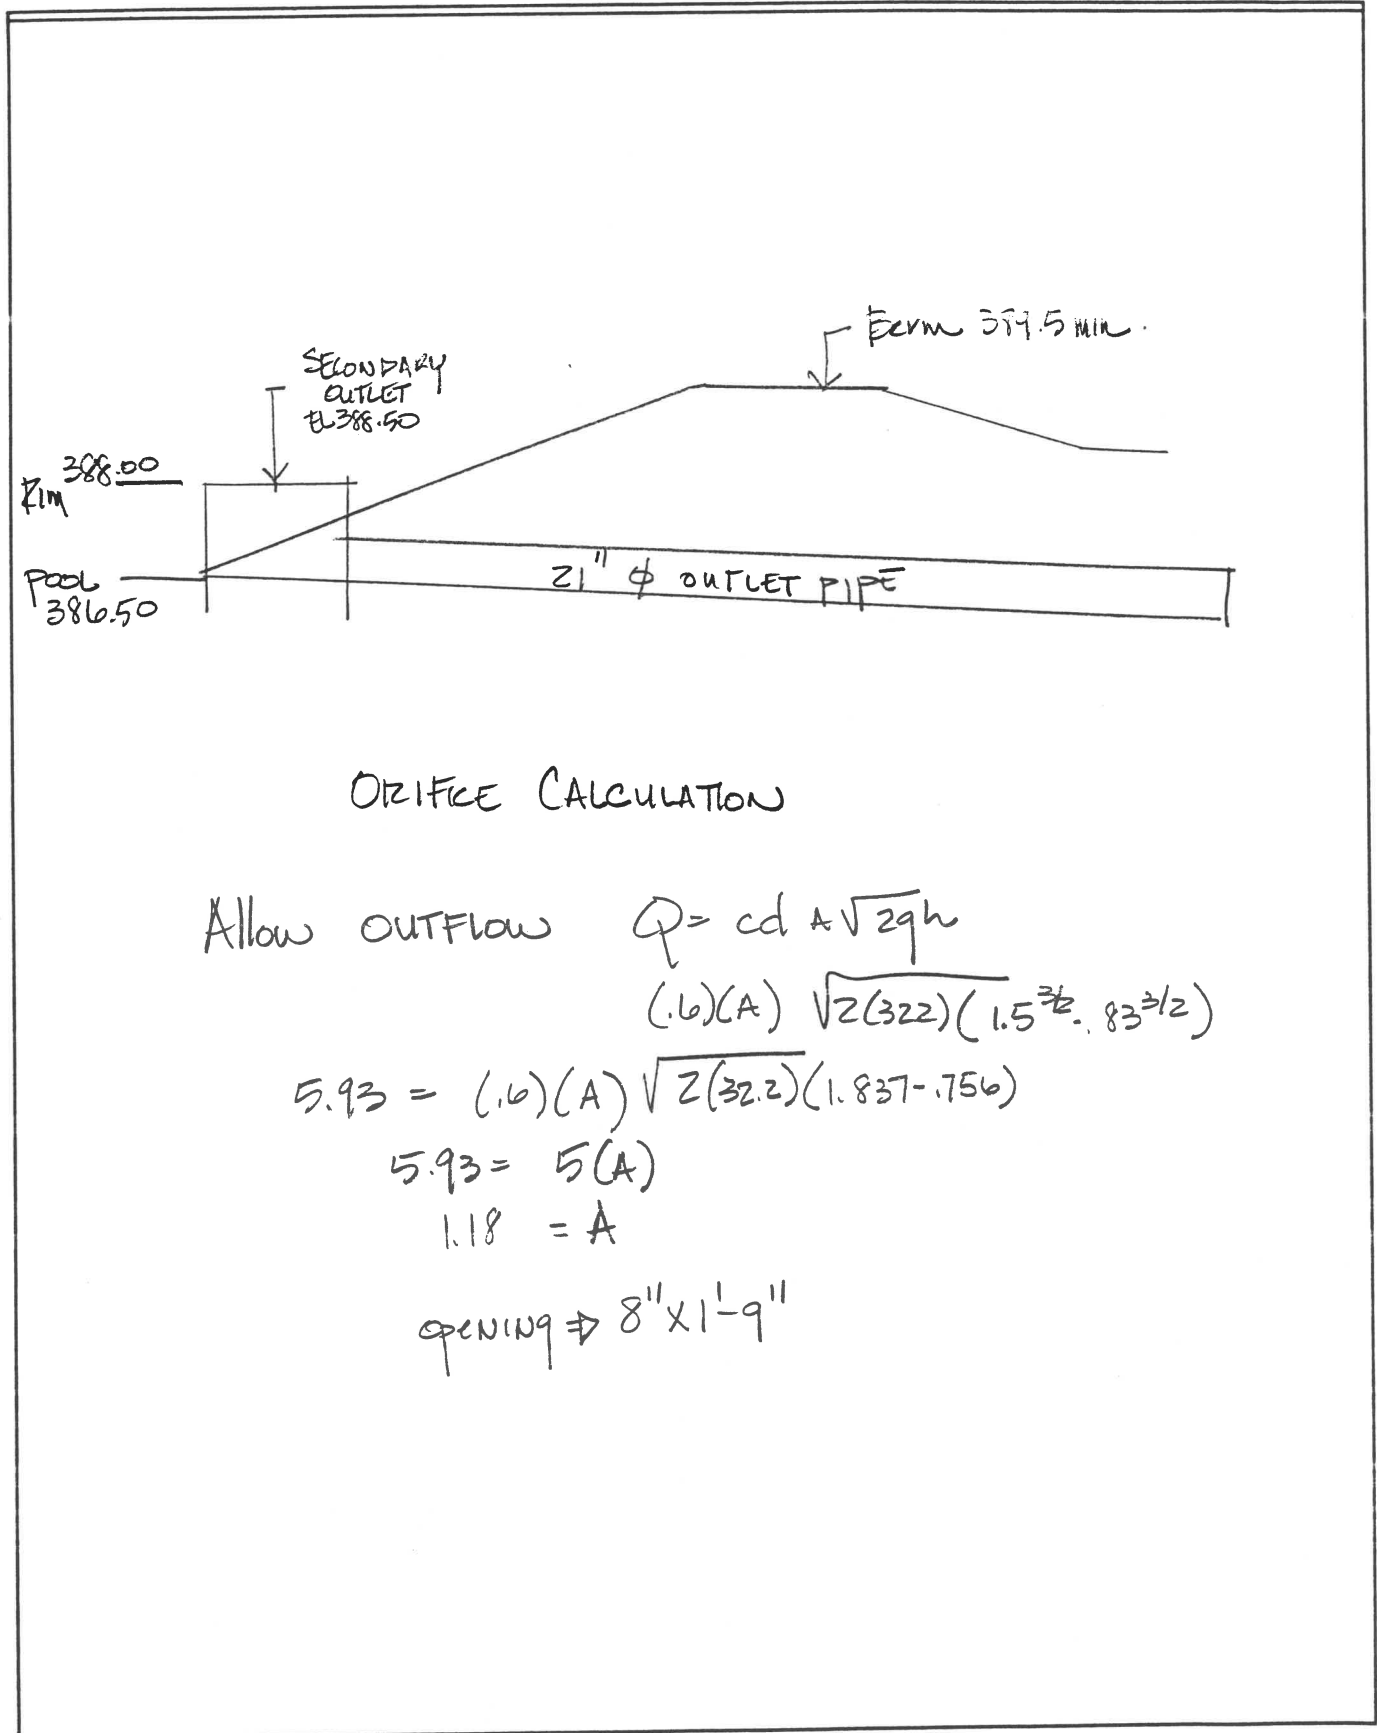 Berm 389.5 min.
SECONDARY
OUTLET
EL 388.50
388.00
Rim
POOL
386.50
21" ϕ OUTLET PIPE
ORIFICE CALCULATION
Allow OUTFLOW Q= cd A√2gh
(.6)(A) √2(322)(1.5^3/2 - .83^3/2)
5.93 = (.6)(A)√2(32.2)(1.837-.756)
5.93= 5(A)
1.18 = A
OPENING ⇒ 8"X1'-9"